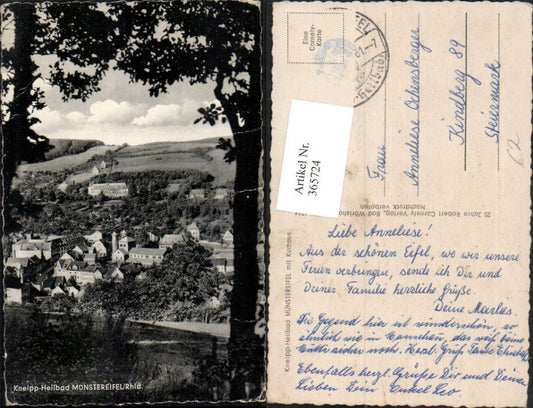 Kneipp-Heilbad MÜNSTEREIFEL/Rhld.
Eine
Cornely-
Karte
Artikel Nr.
365724
Frau
Anneliese Ochensberger
Kindberg 89
Steiermark
62
25 Jahre Robert Cornely Verlag, Bad Wörisho
Nachdruck verboten
Kneipp-Heilbad MÜNSTEREIFEL mit Kurhaus
Liebe Anneliese!
Aus der schönen Eifel, wo wir unsere
Ferien verbringen, sende ich Dir und
Deiner Familie herzliche Grüße.
Deine Marlis.
Die Gegend hier ist wunderschön, so
ähnlich wie in Kärnthen, das weiß deine
Mutti sicher noch. Herzl. Grüße Tante
Ebenfalls herzl. Grüße Dir und Deinen
Lieben Dein Onkel Leo